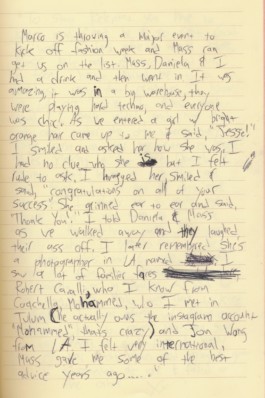 Marco is throwing a major event to
kick off fashion week and Mass can
get us on the list. Mass, Daniela & I
had a drink and then went in It was
amazing, it was in a big warehouse, they
were playing hard techno, and everyone
was chic. As we entered a girl w/ bright
orange hair came up to me & said, "Jesse!"
I smiled and asked her how she was, I
had no clue who she is but I felt
rude to ask. I hugged her, smiled &
said, "congratulations on all of your
success" She grinned ear to ear and said,
"Thank You!" I told Daniela & Mass
as we walked away and they laughed
their ass off. I later remembered She's
a photographer in LA named I
saw a lot of familiar faces
Robert Cavalli, who I know from
Coachella, Mohammed, who I met in
Tulum (he actually owns the instagram account
"Mohammed" that's crazy) and Jon Wong
from LA. I felt very international,
Mass gave me some of the best
advice years ago.....'